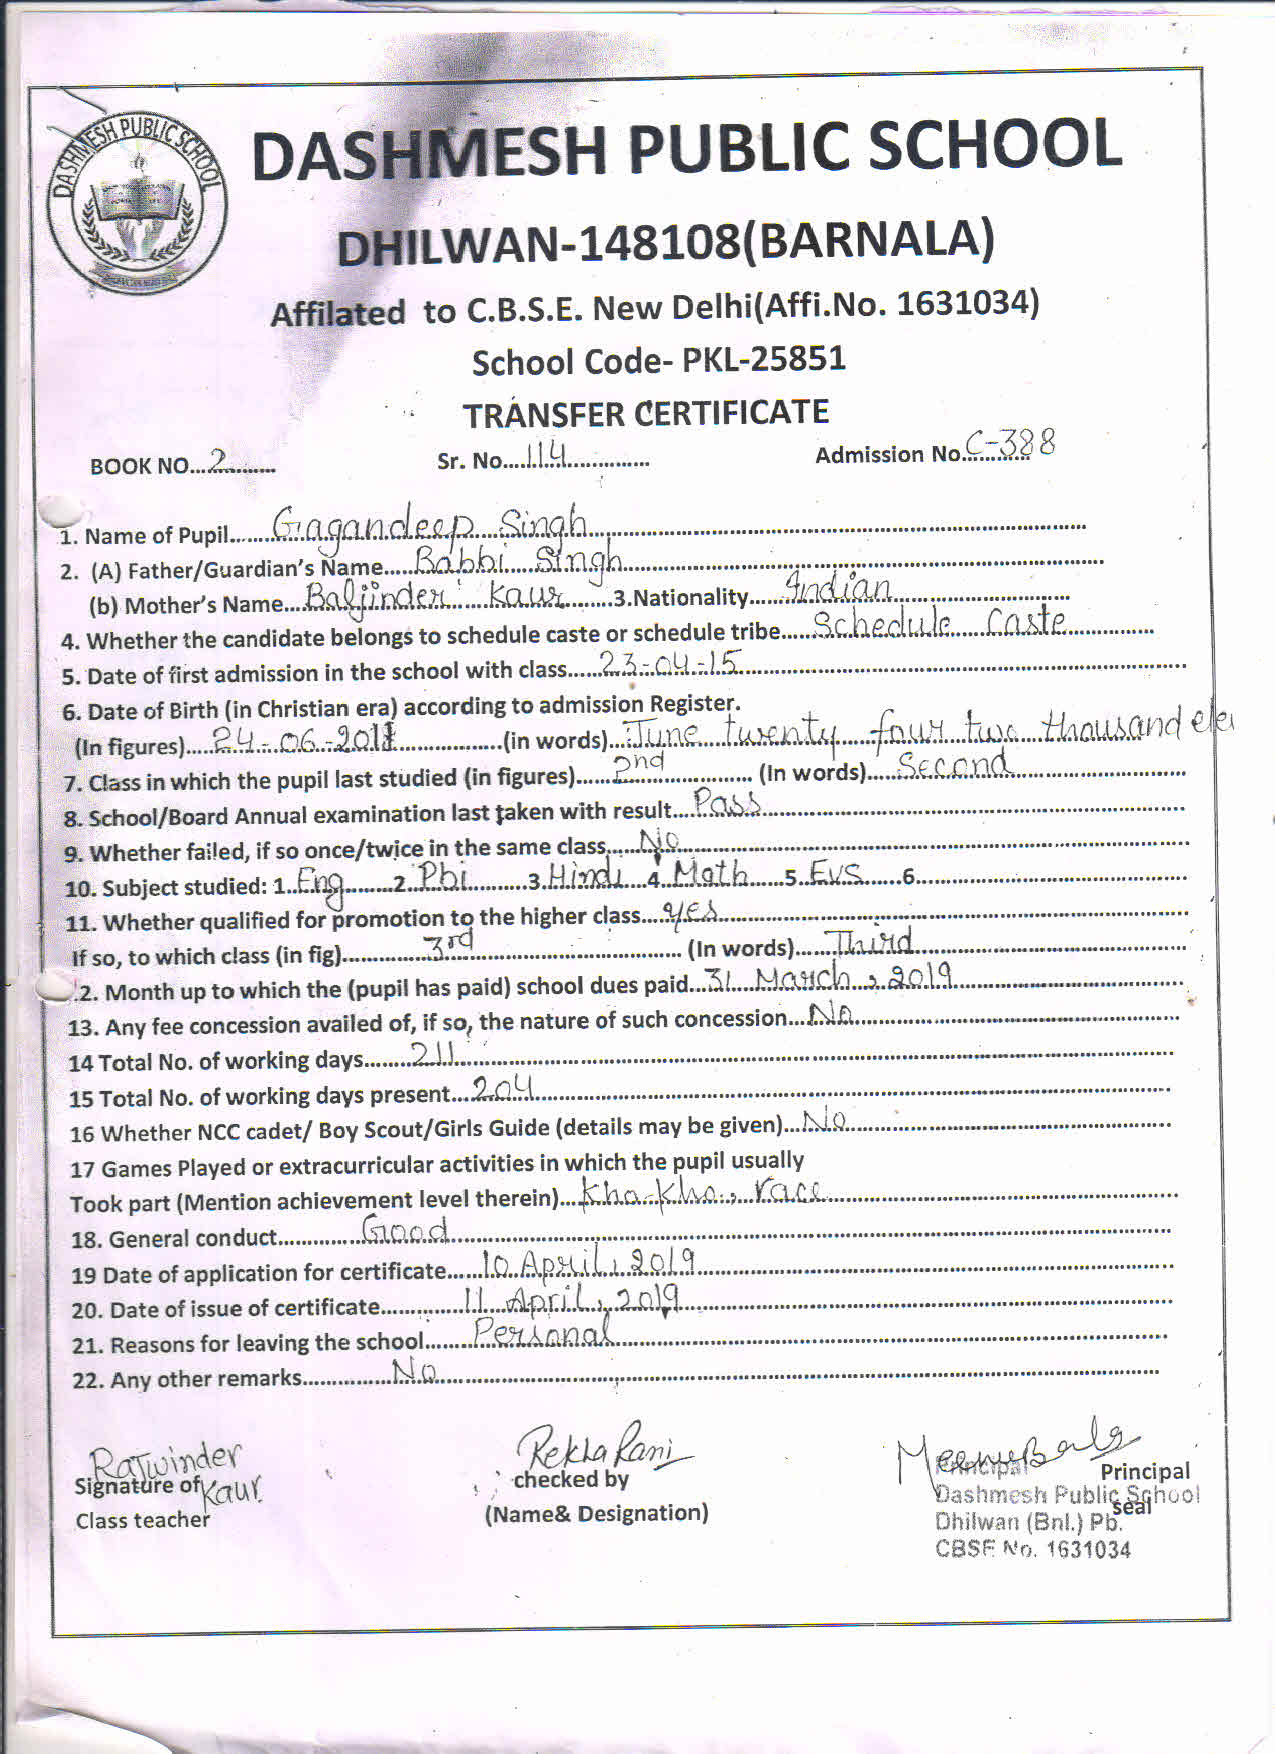 DASHMESH PUBLIC SCHOOL
DASHMESH PUBLIC SCHOOL
DHILWAN-148108(BARNALA)
Affilated to C.B.S.E. New Delhi(Affi.No. 1631034)
School Code- PKL-25851
TRANSFER CERTIFICATE
BOOK NO...2......... Sr. No....114............... Admission No.C-388
1. Name of Pupil.......Gagandeep Singh
2. (A) Father/Guardian's Name.....Babbi Singh
(b) Mother's Name...Baljinder Kaur........3.Nationality......Indian
4. Whether the candidate belongs to schedule caste or schedule tribe.....Schedule Caste
5. Date of first admission in the school with class......23-04-15
6. Date of Birth (in Christian era) according to admission Register.
(In figures).....24-06-2011................(in words)...June twenty four two thousand ele
7. Class in which the pupil last studied (in figures).....2nd................ (In words).....Second
8. School/Board Annual examination last taken with result...Pass
9. Whether failed, if so once/twice in the same class......No
10. Subject studied: 1..Eng........2..Pbi.........3.Hindi...4..Math......5..EVS......6
11. Whether qualified for promotion to the higher class....yes
If so, to which class (in fig).............3rd.............................. (In words)......Third
2. Month up to which the (pupil has paid) school dues paid...31 March, 2019
13. Any fee concession availed of, if so, the nature of such concession...No
14 Total No. of working days........211
15 Total No. of working days present...204
16 Whether NCC cadet/ Boy Scout/Girls Guide (details may be given)...No
17 Games Played or extracurricular activities in which the pupil usually
Took part (Mention achievement level therein)...Kho-Kho, race
18. General conduct.............Good
19 Date of application for certificate......10 April, 2019
20. Date of issue of certificate.............11 April, 2019
21. Reasons for leaving the school.......Personal
22. Any other remarks..............No
Rajwinder Kaur Rekha Rani Meenu Bala
Signature of checked by Principal Principal
Class teacher (Name& Designation) seal
Dashmesh Public School
Dhilwan (Bnl.) Pb.
CBSE No. 1631034